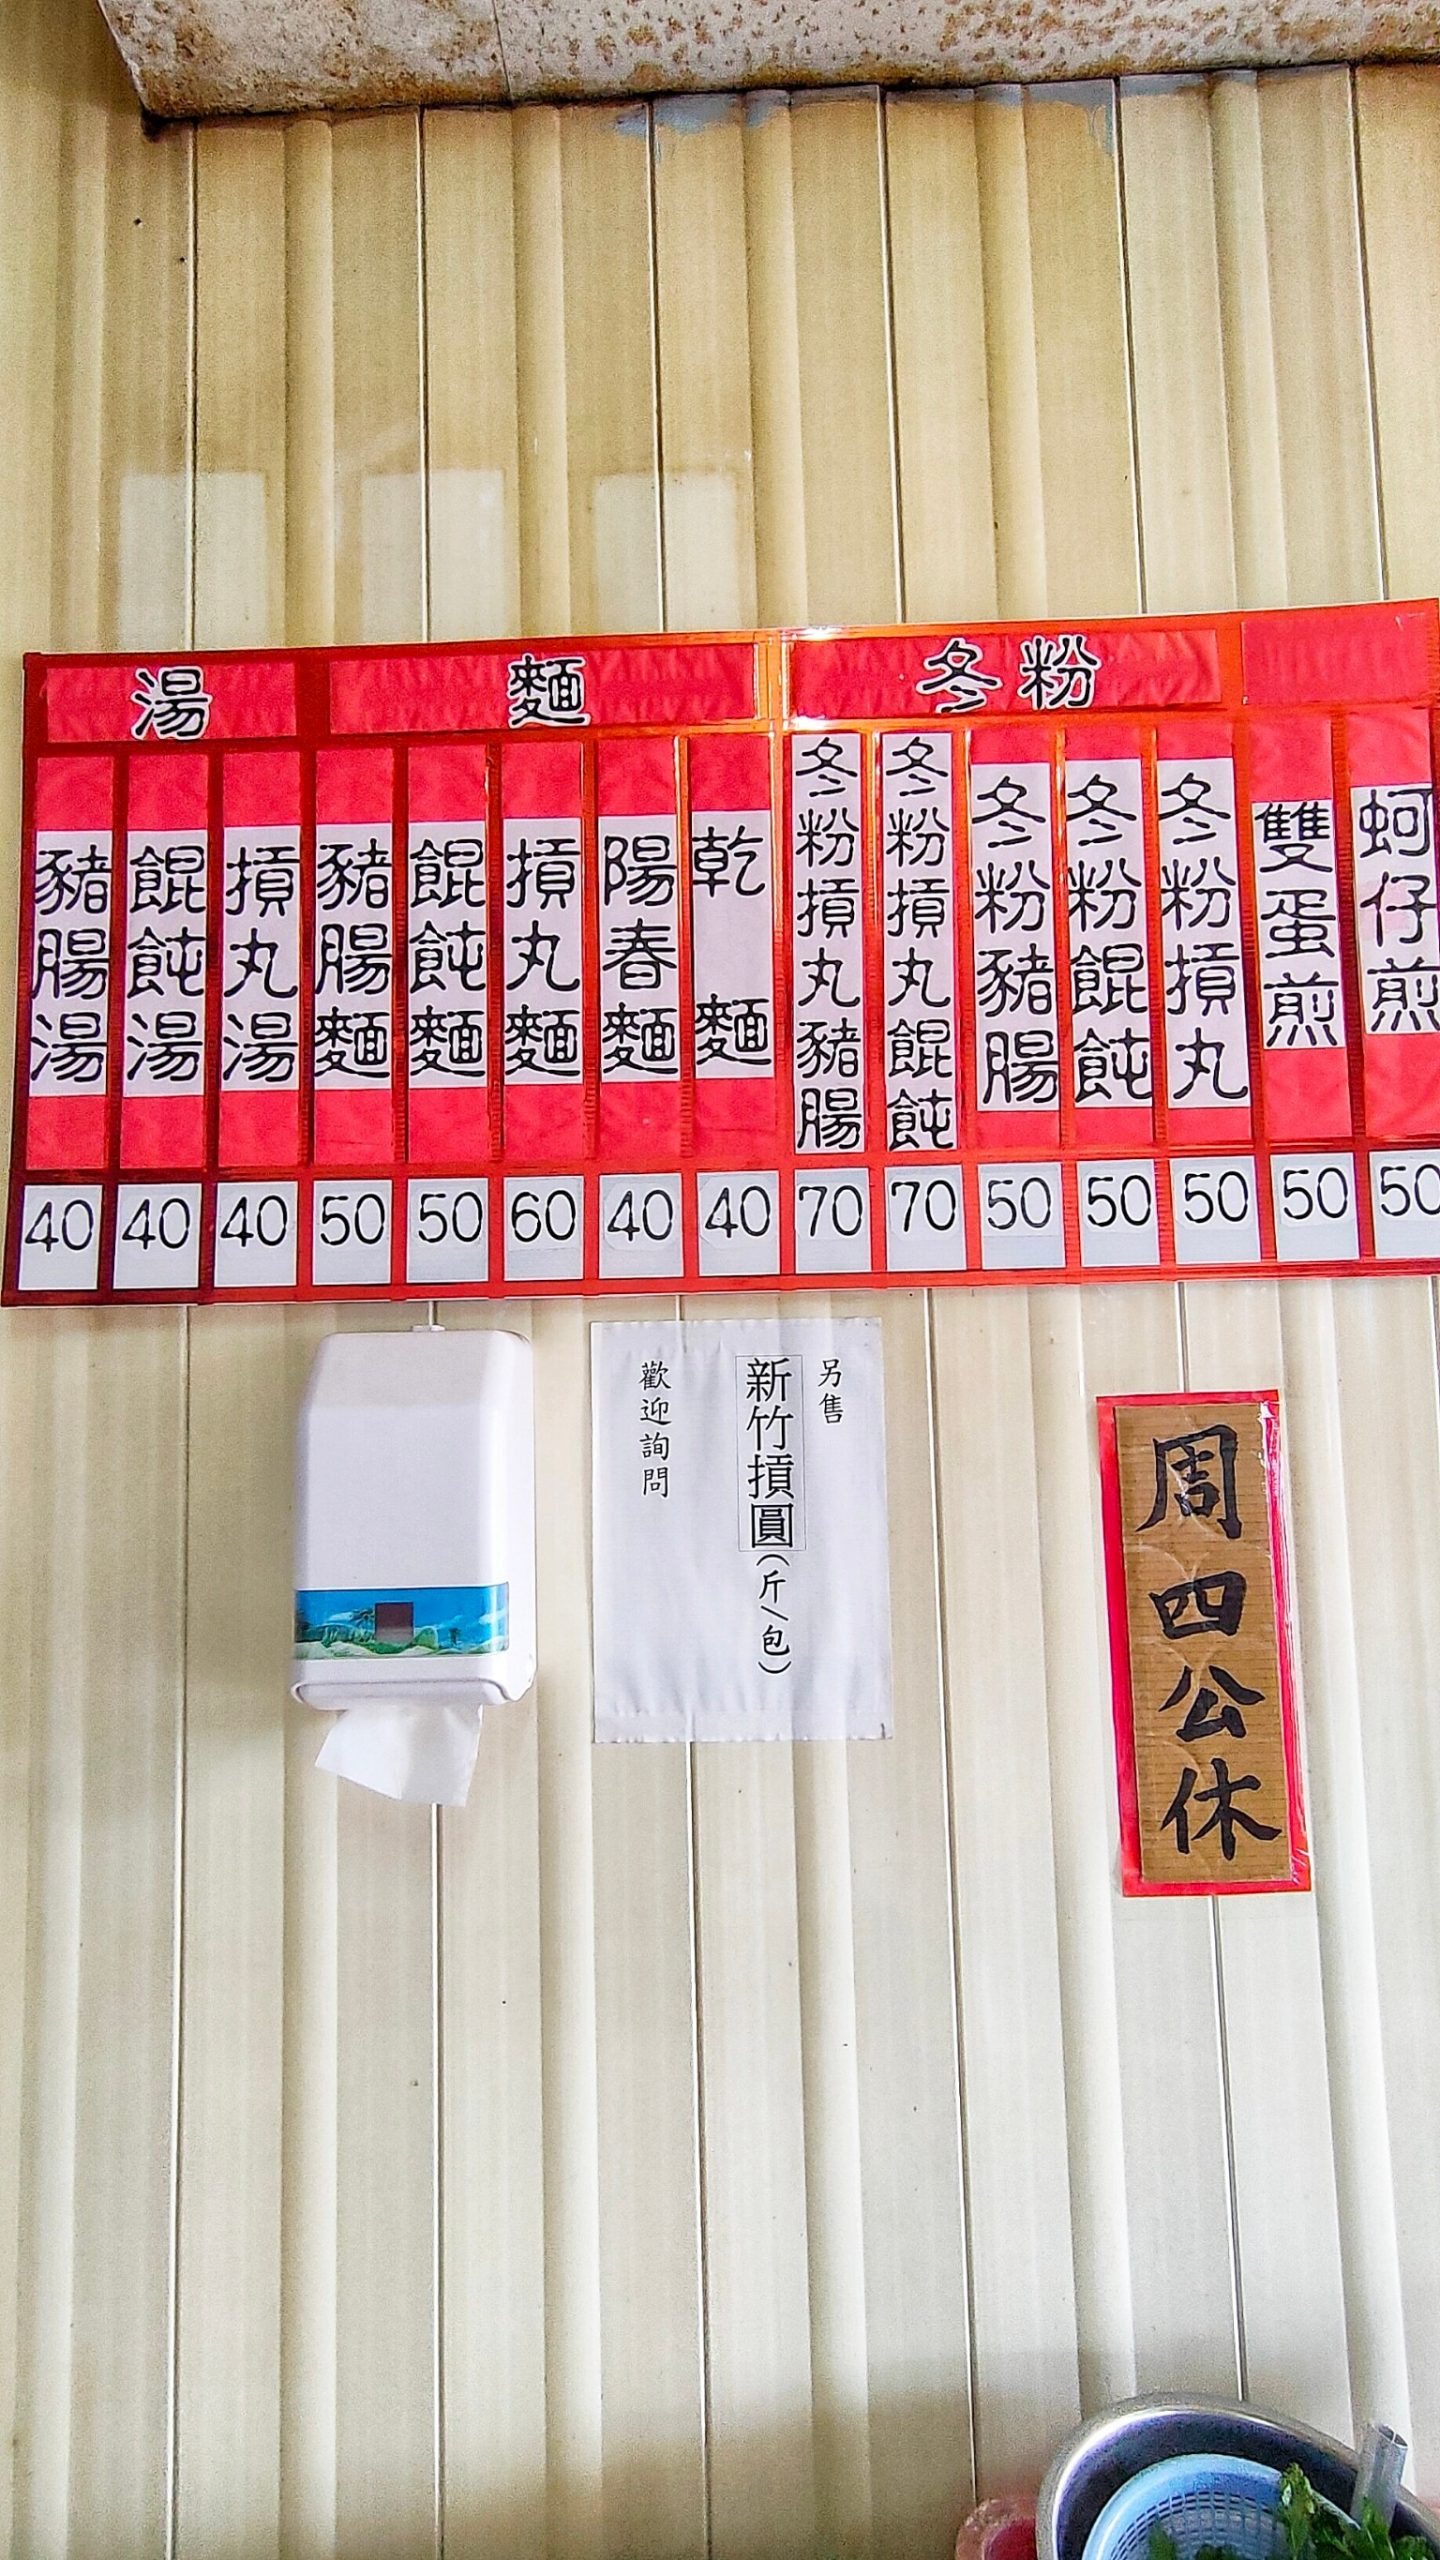 湯
豬腸湯 40
餛飩湯 40
摃丸湯 40
麵
豬腸麵 50
餛飩麵 50
摃丸麵 60
陽春麵 40
乾麵 40
冬粉
冬粉摃丸豬腸 70
冬粉摃丸餛飩 70
冬粉豬腸 50
冬粉餛飩 50
冬粉摃丸 50
雙蛋煎 50
蚵仔煎 50
另售
新竹摃圓(斤/包)
歡迎詢問
周四公休